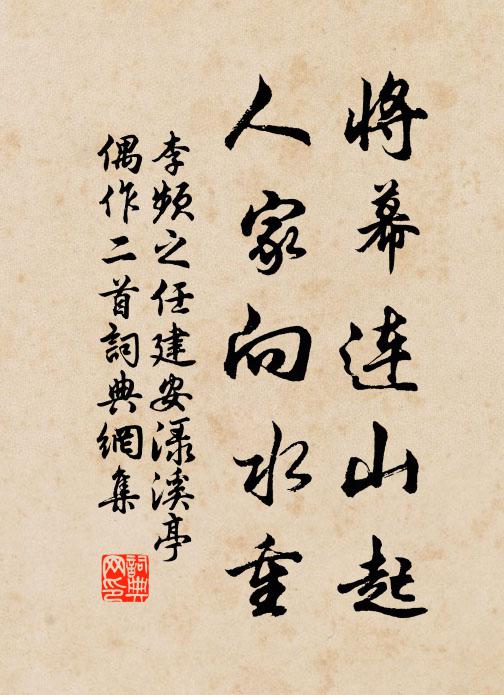 將幕連山起
人家向水重
李頻之任建安淥溪亭
偶作二首詞典網集
詞典網印